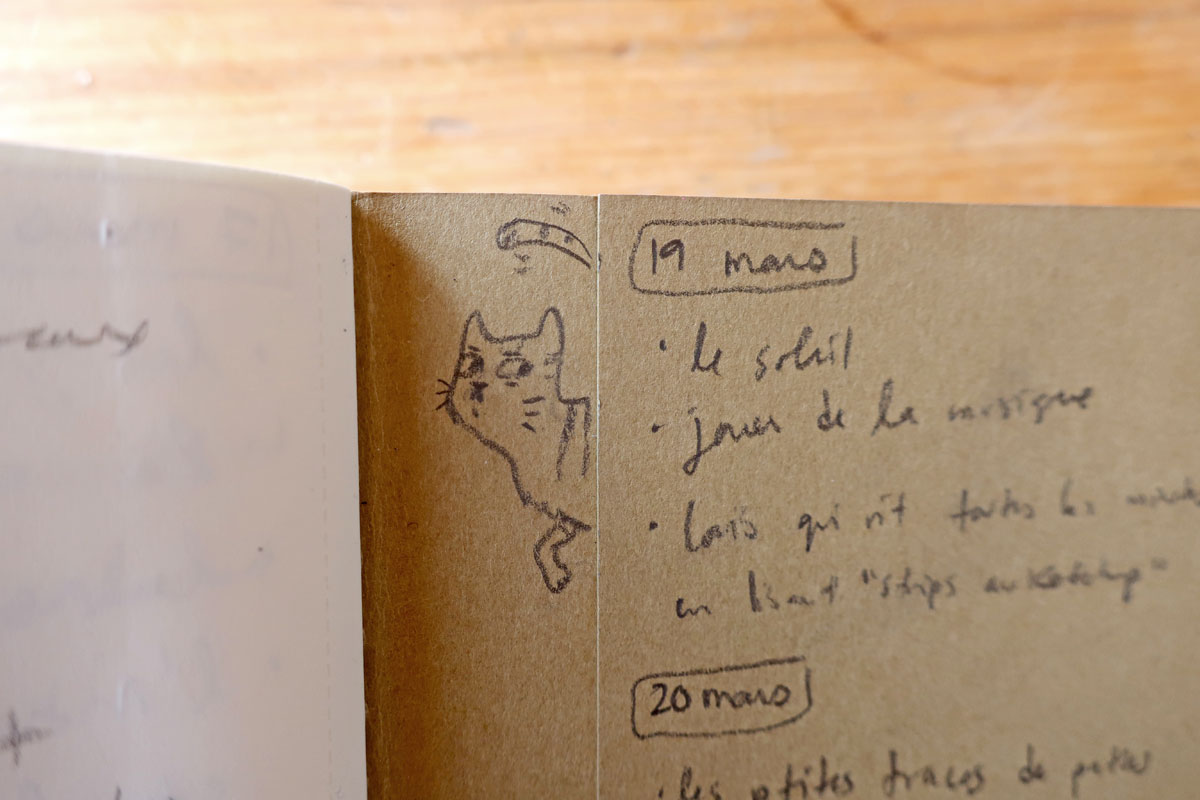 19 mars
· le soleil
· jouer de la musique
· Loris qui rit toutes les
en lisant "strips au Ketchup"
20 mars
· les ptites traces de pattes